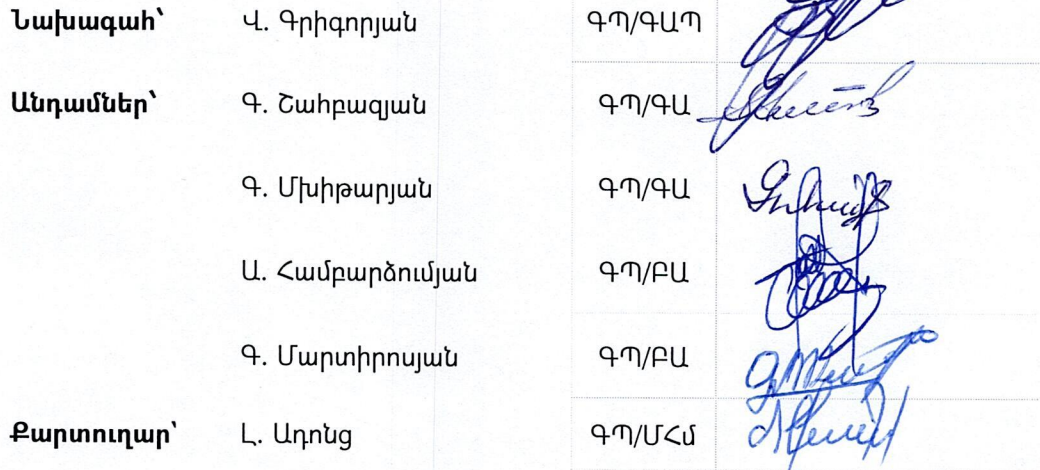 Նախագահ՝ Վ. Գրիգորյան ԳՊ/ԳԱՊ
Անդամներ՝ Գ. Շահբազյան ԳՊ/ԳԱ
Գ. Մխիթարյան ԳՊ/ԳԱ
Ա. Համբարձումյան ԳՊ/ԲԱ
Գ. Մարտիրոսյան ԳՊ/ԲԱ
Քարտուղար՝ Լ. Ադոնց ԳՊ/ՄՀմ